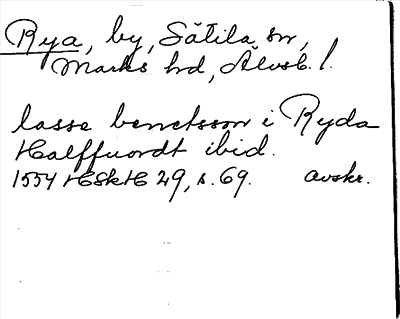 Rya, by, Sätila sn,
Marks hd, Älvsb. l.
lasse benctsson i Ryda
Halffuordt ibid.
1554 HSkH 29, s. 69. avskr.